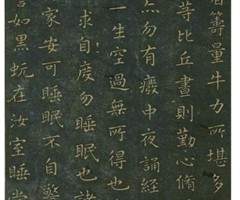 者籌量牛力所堪多
等比丘晝則勤心脩
亦勿有癈中夜誦経
一生空過無所得也
求自度勿睡眠也諸
家安可睡眠不自驚
如黒蚖在汝室睡